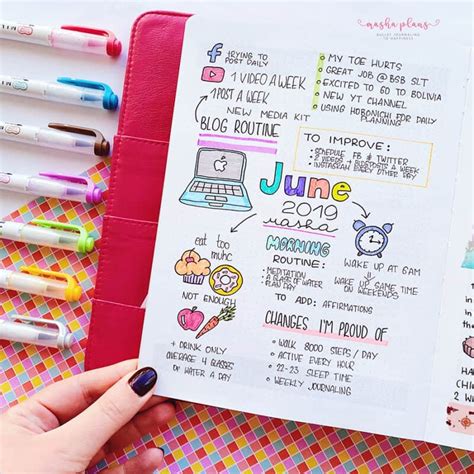 masha plans
BULLET JOURNALING
TO HAPPINESS
TRYING TO
POST DAILY
1 VIDEO A WEEK
1 POST A WEEK
NEW MEDIA KIT
BLOG ROUTINE
MY TOE HURTS
GREAT JOB @ BSB SLT
EXCITED TO GO TO BOLIVIA
NEW YT CHANNEL
USING HOBONICHI FOR DAILY
PLANNING
TO IMPROVE:
SCHEDULE FB & TWITTER
2 VIDEOS + POSTS A WEEK
INSTAGRAM EVERY OTHER DAY
June
2019
masha
eat too
muhc
NOT ENOUGH
+ DRINK ONLY
AVERAGE 4 GLASSES
OF WATER A DAY
MORNING
ROUTINE:
MEDITATION
A GLASS OF WATER
PLAN DAY
WAKE UP AT 6AM
WAKE UP SAME TIME
ON WEEKENDS
TO ADD: AFFIRMATIONS
CHANGES I'M PROUD OF
WALK 8000 STEPS / DAY
ACTIVE EVERY HOUR
22-23 SLEEP TIME
WEEKLY JOURNALING